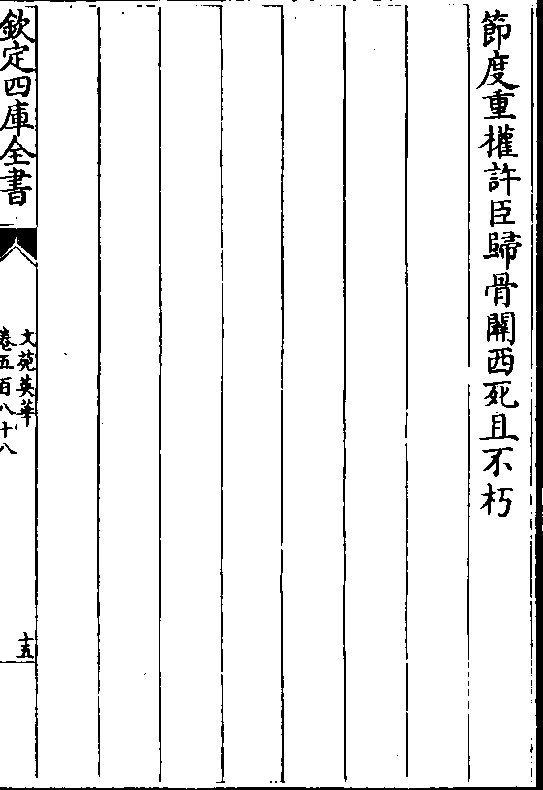 節度重權許臣歸骨關西死且不朽
欽定四庫全書
文苑英華
卷五百八十八
十五